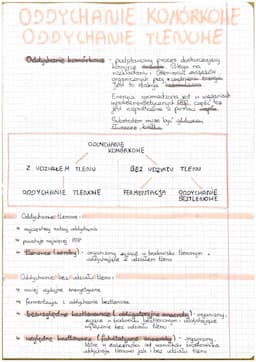 ODDYCHANIE KOMÓRKOWE
ODDYCHANIE TLENOWE
Oddychanie komórkowe - podstawowy proces dostarczający
energię
rozkładaniu i związków
organicznych przy
jest to reakcja
Energia gromadzona jest w wiązaniach
wysokoenergetycznych ATP, część też
jest w postaci ciepła
Substratem może być glukoza,
tłuszcze, białka
ODDYCHANIE
KOMÓRKOWE
Z UDZIAŁEM TLENU BEZ UDZIAŁU TLENU
ODDYCHANIE TLENOWE FERMENTACJA ODDYCHANIE
BEZTLENOWE
Oddychanie tlenowe:
najczęstszy rodzaj oddychania
powstaje najwięcej ATP
tlenowce (aeroby) - organizmy żyjące w środowisku tlenowym,
oddychające z udziałem tlenu
Oddychanie bez udziału tlenu:
mniej wydajne energetycznie
fermentacja i oddychanie beztlenowe
bezwzględne beztlenowce (obligatoryjne anaeroby) - organizmy
żyjące w środowisku beztlenowym, oddychające
wyłącznie bez udziału tlenu
względne beztlenowce (fakultatywne anaeroby) - organizmy,
które w zależności od warunków środowiska
oddychają tlenowo jak i bez udziału tlenu